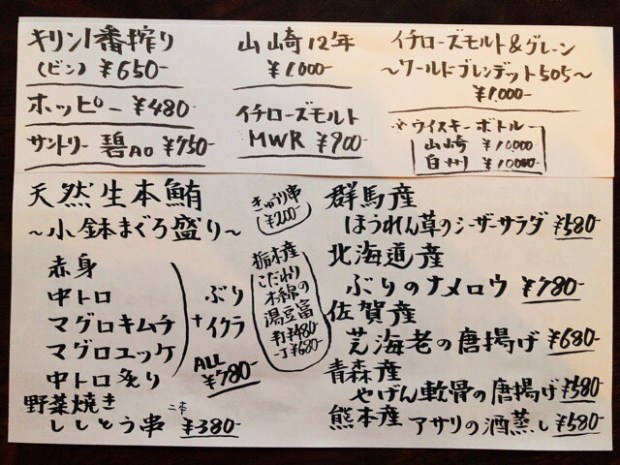 キリン1番搾り
(ビン) ¥650-
ホッピー ¥480-
サントリー 碧Ao ¥750-
山崎12年
¥1.000-
イチローズモルト
MWR ¥900-
イチローズモルト&グレーン
~ワールドブレンデット505~
¥1.000-
ウイスキーボトル
山崎 ¥10000
白州 ¥10000-
天然生本鮪
~小鉢まぐろ盛り~
赤身
中トロ
マグロキムチ
マグロユッケ
中トロ炙り
ぶり
イクラ
ALL
¥780-
野菜焼き
ししとう串 二本 ¥380-
きゅうり串
¥200-
栃木産
こだわり
木綿の
湯豆富
半丁¥480-
一丁¥680-
群馬産
ほうれん草のシーザーサラダ ¥580-
北海道産
ぶりのナメロウ ¥780-
佐賀産
芝海老の唐揚げ ¥680-
青森産
やげん軟骨の唐揚げ ¥580-
熊本産 アサリの酒蒸し ¥580-